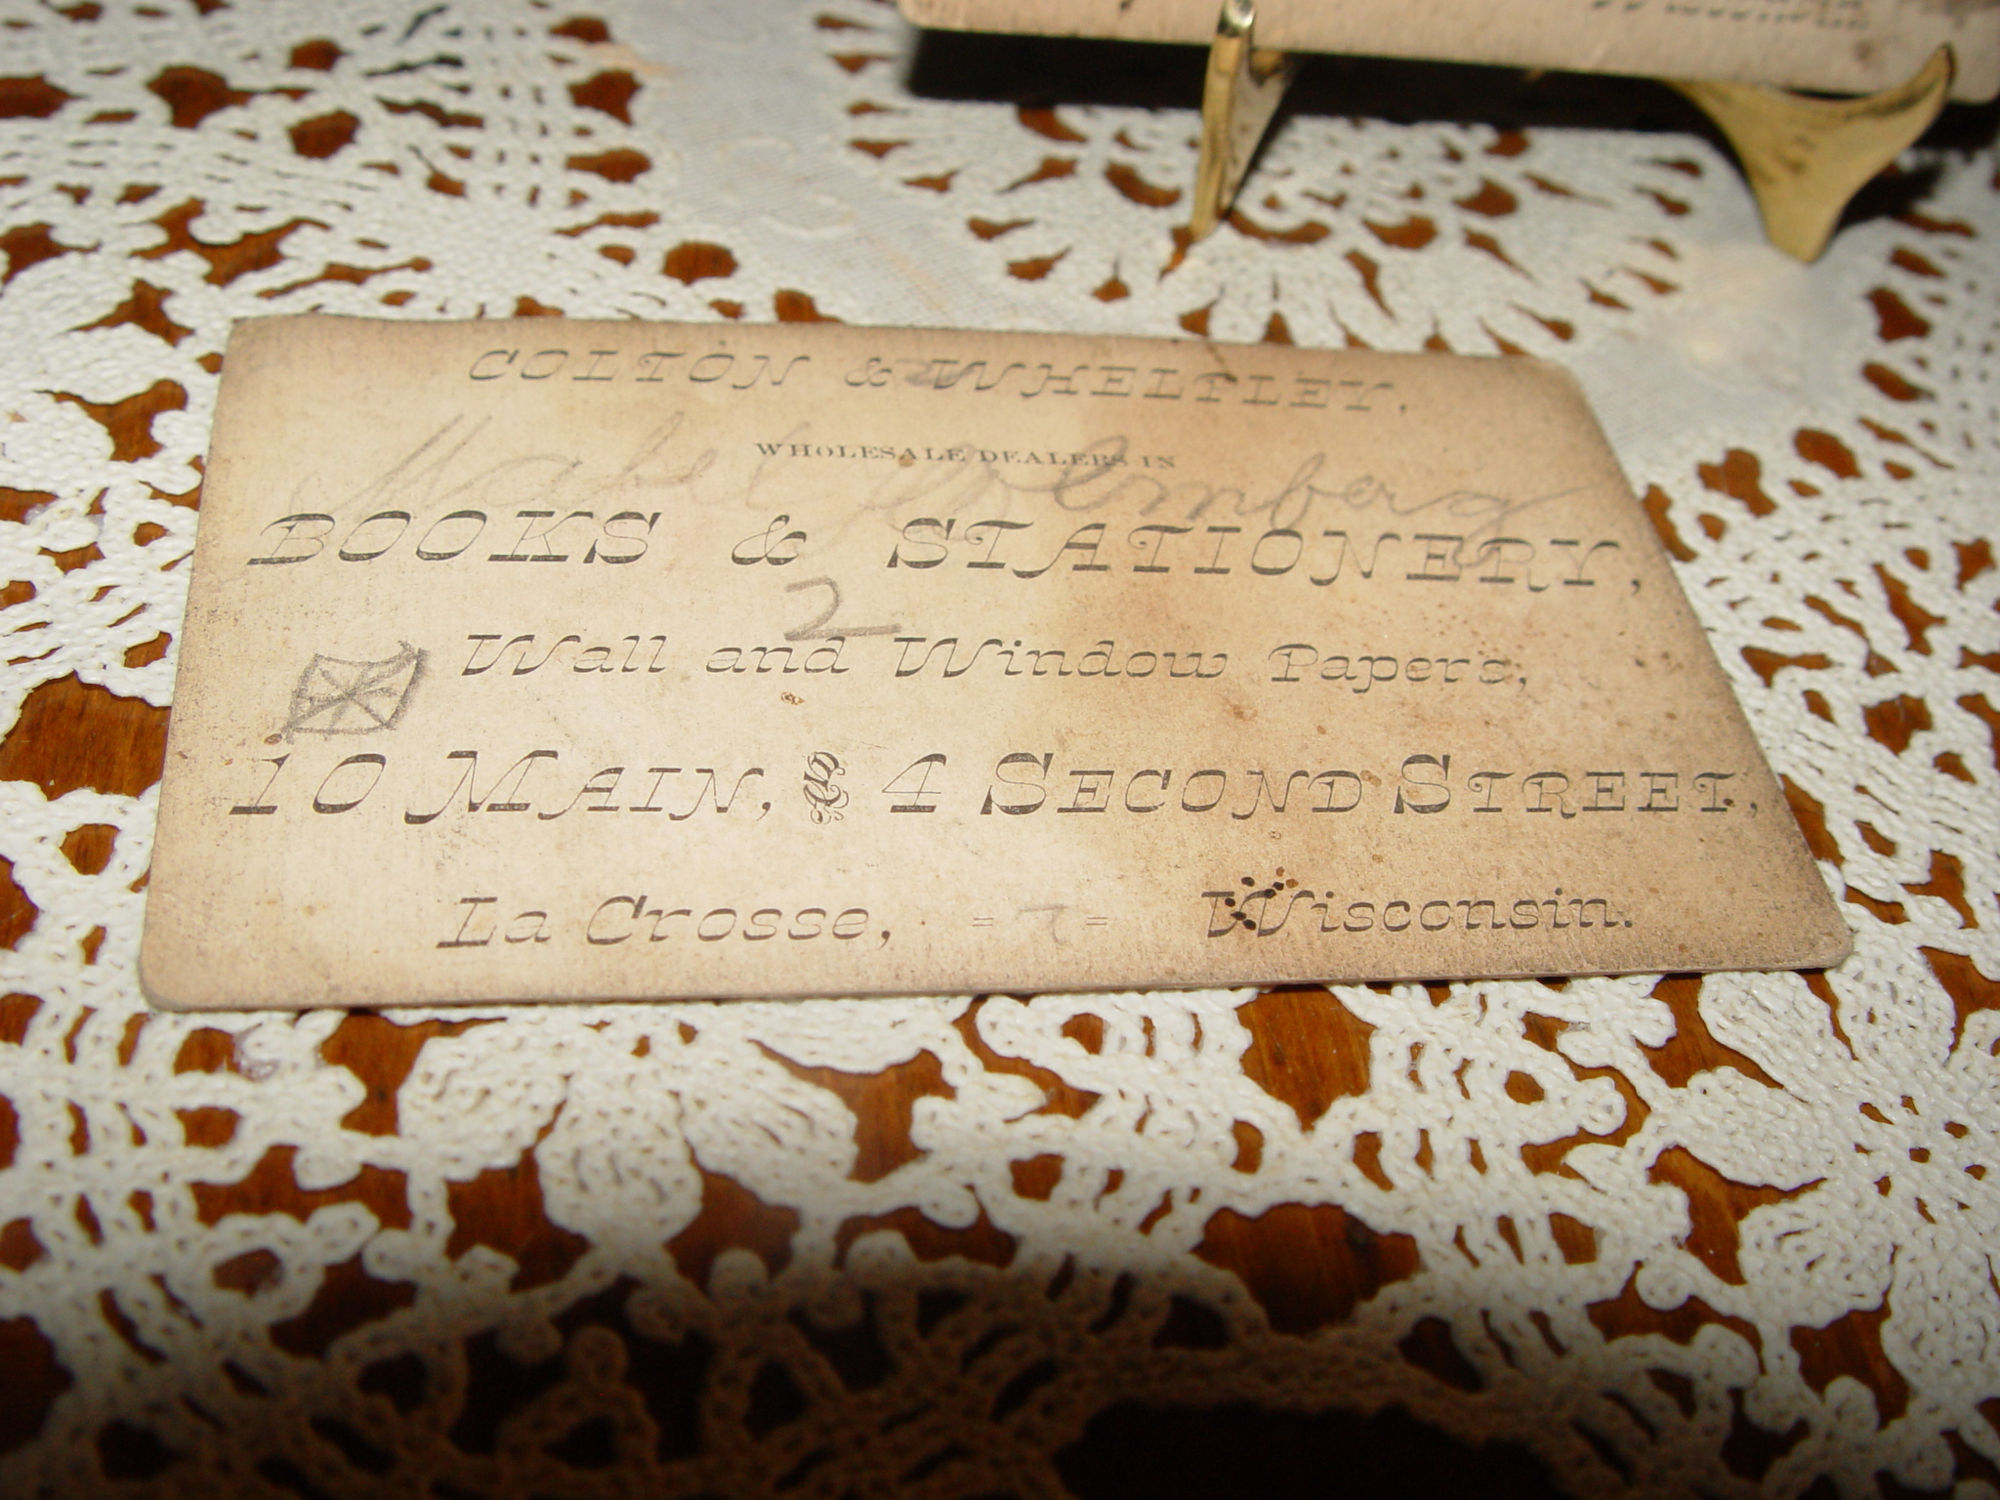 COLTON & WHELPLEY,
WHOLESALE DEALERS IN
Mabel
BOOKS & STATIONERY,
2
Wall and Window Papers,
10 MAIN, & 4 SECOND STREET,
La Crosse, = = Wisconsin.